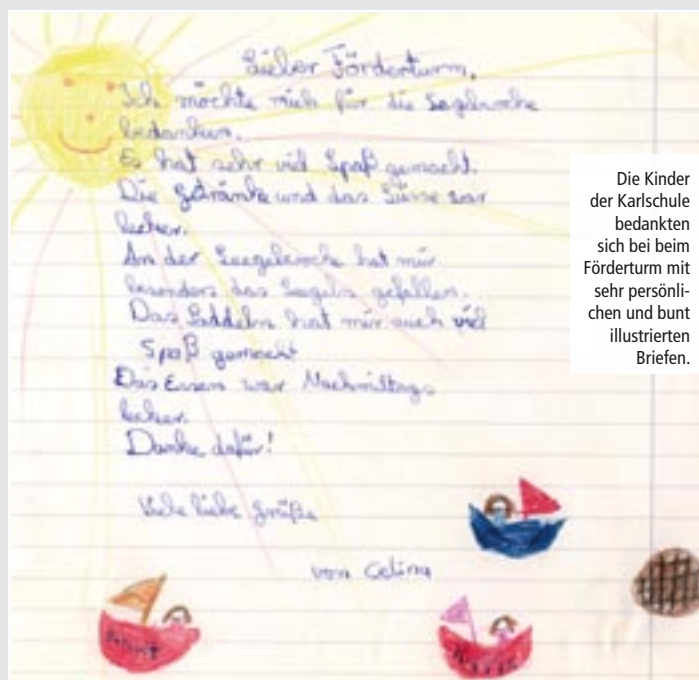 Lieber Förderturm,
Ich möchte mich für die Segelwoche
bedanken.
Es hat sehr viel Spaß gemacht.
Die Getränke und das Süsse war
lecker.
An der Seegelwoche hat mir
besonders das Segeln gefallen.
Das Paddeln hat mir auch viel
Spaß gemacht
Das Essen war Nachmittags
lecker.
Danke dafür!
Viele liebe Grüße
von Celina
Die Kinder
der Karlschule
bedankten
sich bei beim
Förderturm mit
sehr persönli-
chen und bunt
illustrierten
Briefen.